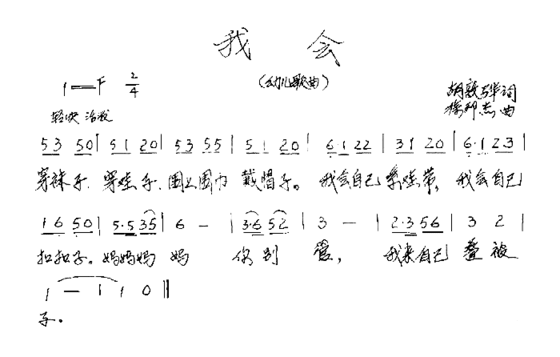 我 会
(幼儿歌曲)
1=F 2/4
胡敦骅词
杰曲
轻快 活泼
53 50 | 51 20 | 53 55 | 51 20 | 6·1 22 | 31 20 | 6·1 23 |
穿袜子,穿鞋子,围上围巾 戴帽子。我会自己系鞋带,我会自己
16 50 | 5·5 35 | 6 — | 3·6 52 | 3 — | 2·3 56 | 3 2 |
扣扣子。妈妈妈 妈 你别 管, 我来自己 叠被
1 — | 1 0 ‖
子。